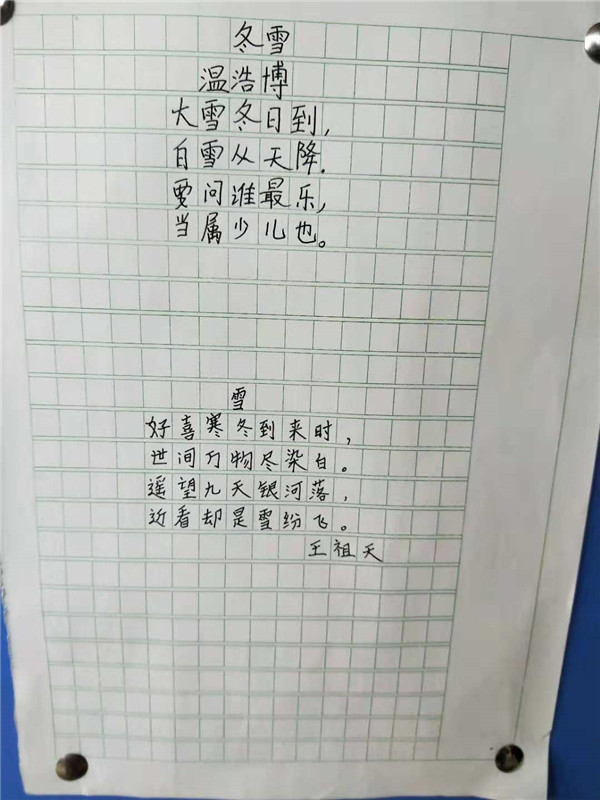 冬雪
温浩博
大雪冬日到，
白雪从天降．
要问谁最乐，
当属少儿也。
雪
好喜寒冬到来时，
世间万物尽染白。
遥望九天银河落，
近看却是雪纷飞。
王祖天